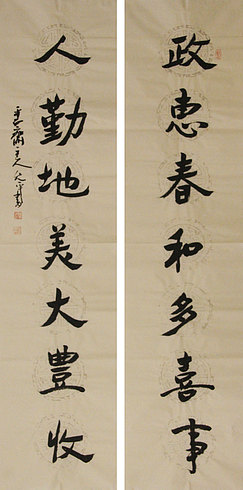 政惠春和多喜事
人勤地美大豊收